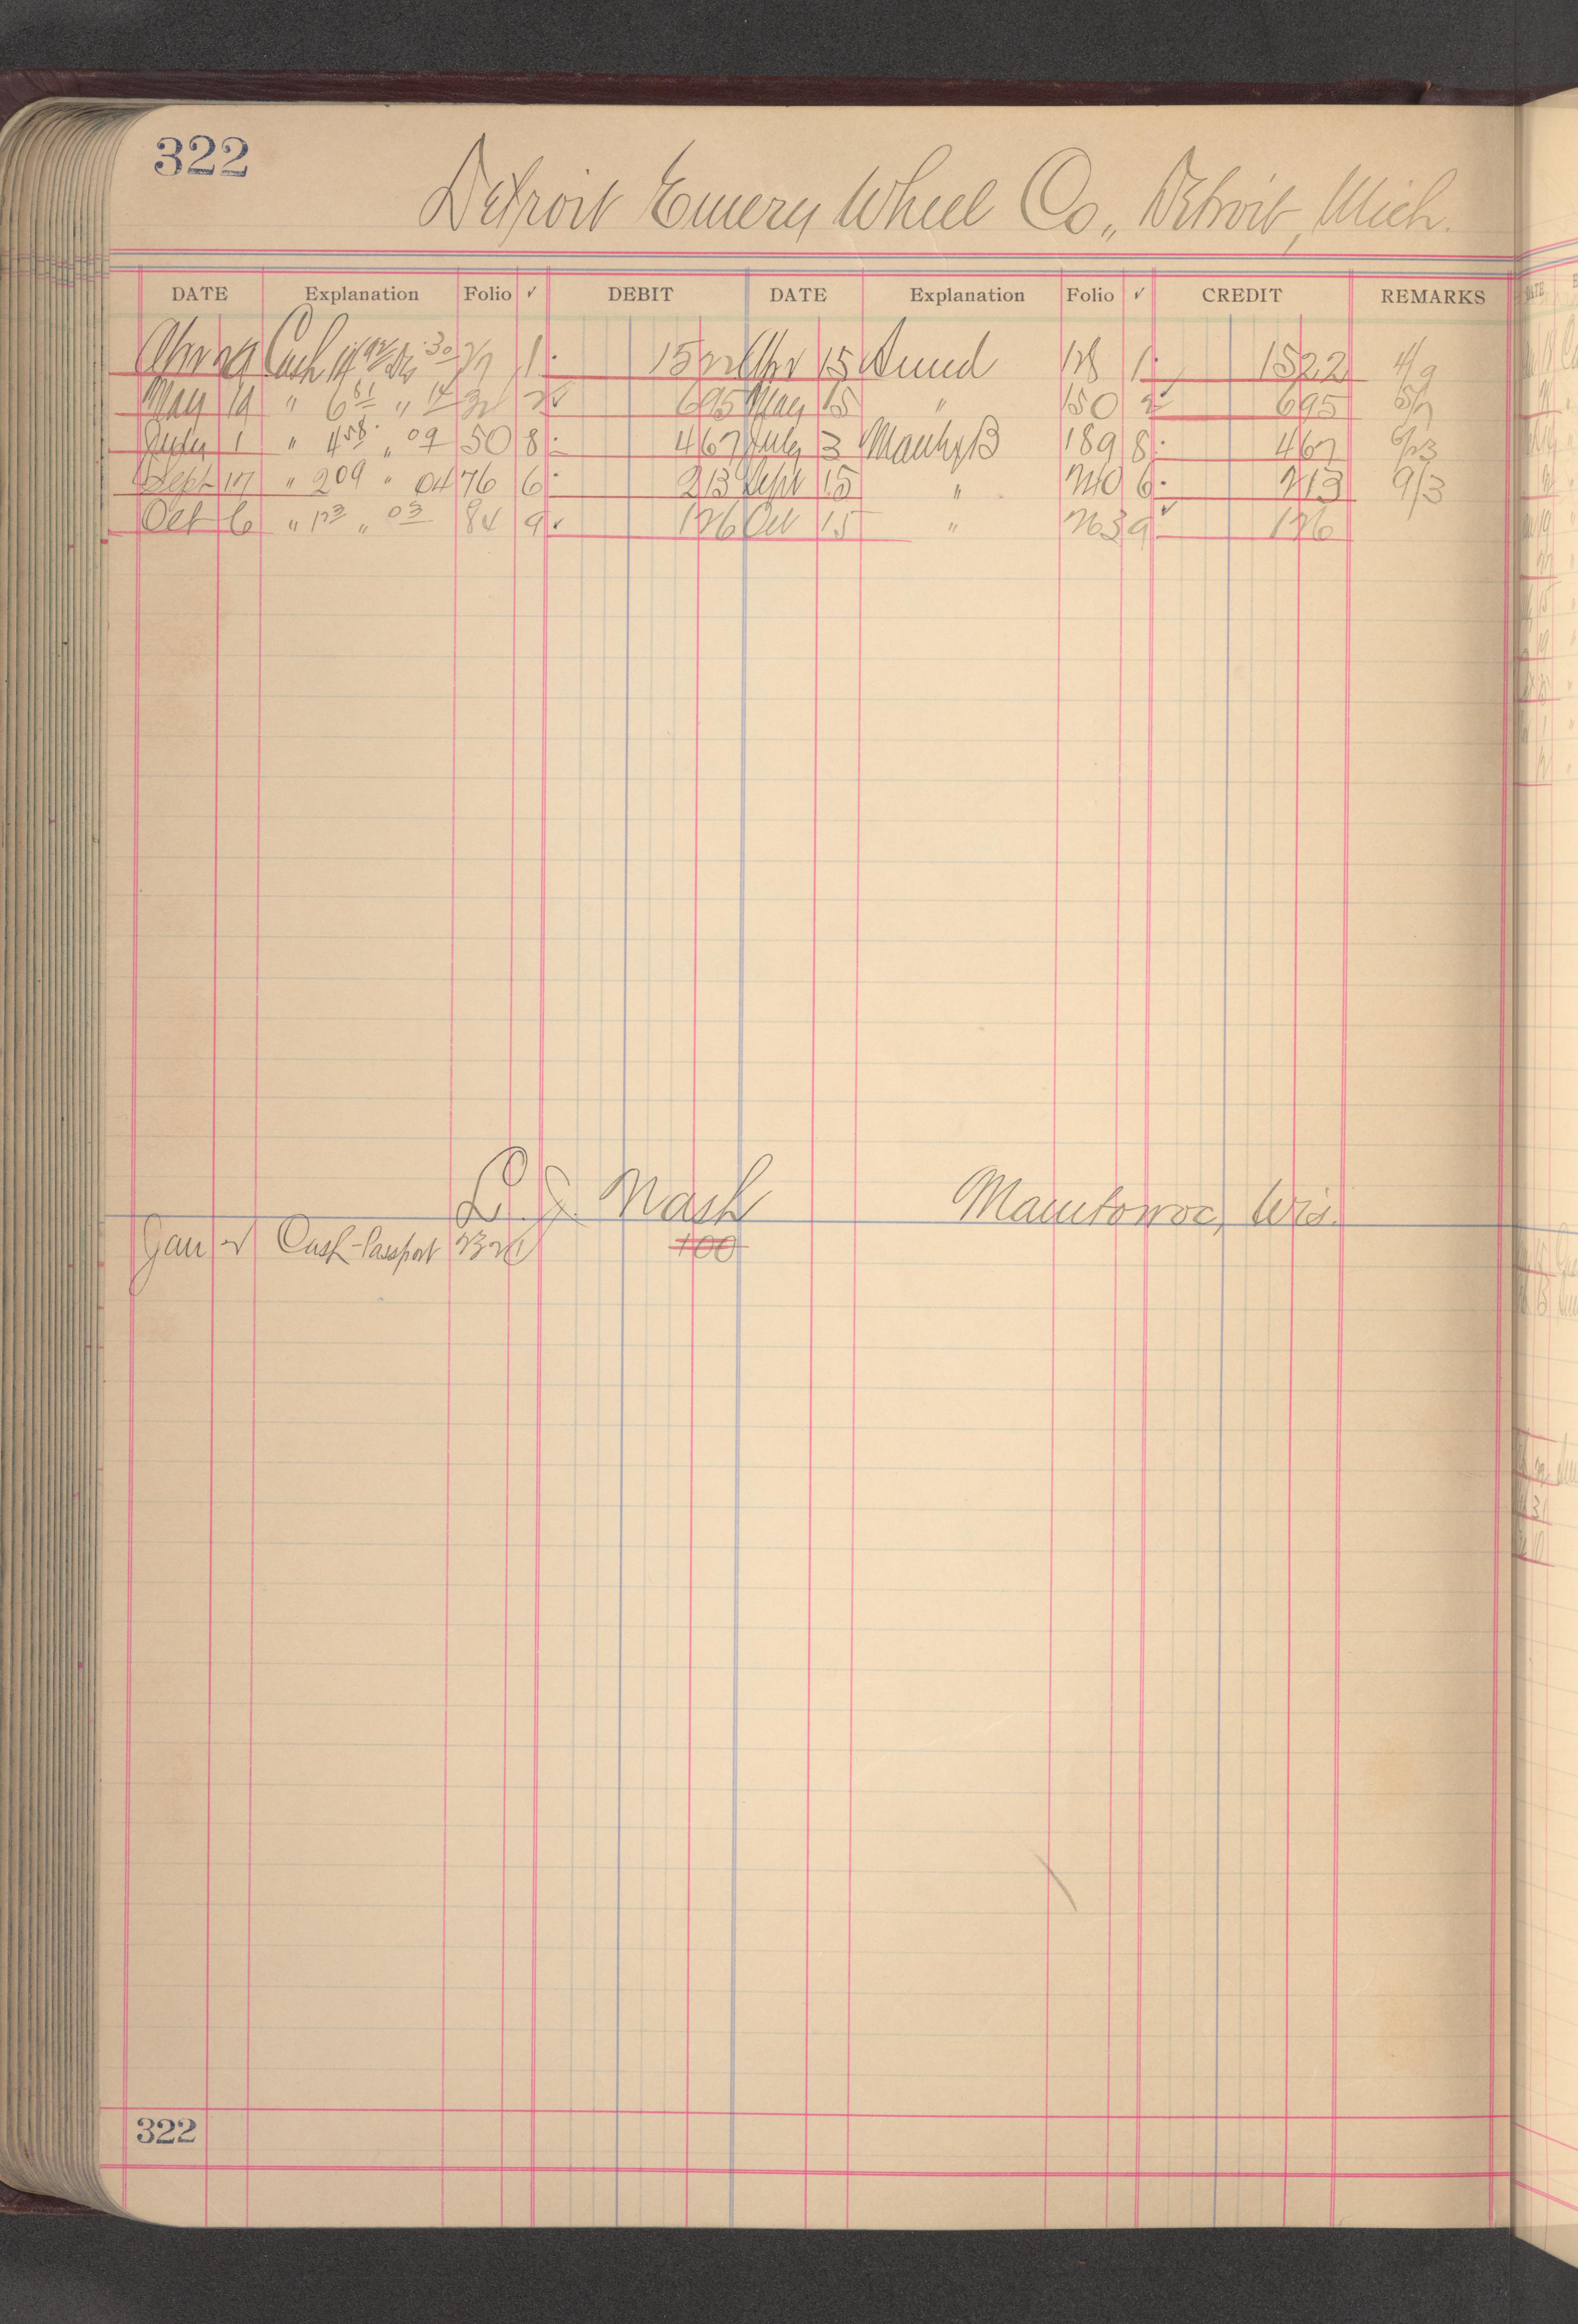 322
Detroit Emery Wheel Co., Detroit, Mich.
DATE Explanation Folio ✓ DEBIT DATE Explanation Folio ✓ CREDIT REMARKS
Cash 30 1 15 Mund 118 1 1522 4/9
May 19 " 6 81 " 14 2 695 May 15 " 150 2 695 5/7
July 1 " 4 58 " 09 50 8 467 July 3 189 8 467 6/23
Sept 17 " 2 09 " 04 76 6 213 Sept 15 " 240 6 213 9/3
Oct 6 " 1 23 " 03 84 9 126 Oct 15 " 263 9 126
L. J. Nash Manitowoc, Wis.
Jan Cash 100
322